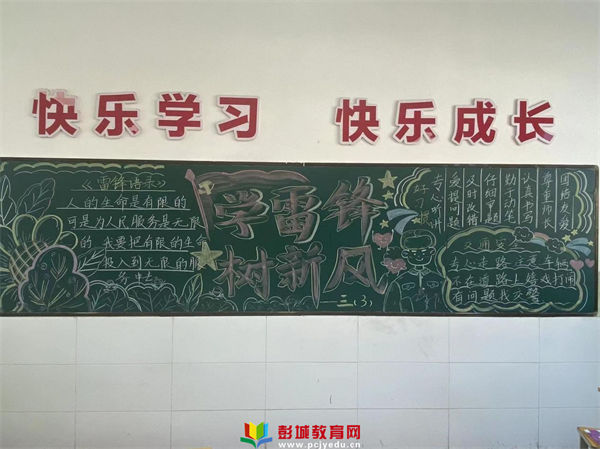 快乐学习 快乐成长
《雷锋语录》
人的生命是有限的
可是为人民服务是无限
的 我要把有限的生命
投入到无限的服
务中去
学雷锋
树新风
三（3）
好
专心听讲
爱提问题
及时改错
仔细审题
勤于动笔
认真书写
尊重师长
团结友爱
交通安全
专心走路 注意车辆
不在道路上嬉戏打闹
有问题找交警
彭城教育网
www.pcjyedu.cn